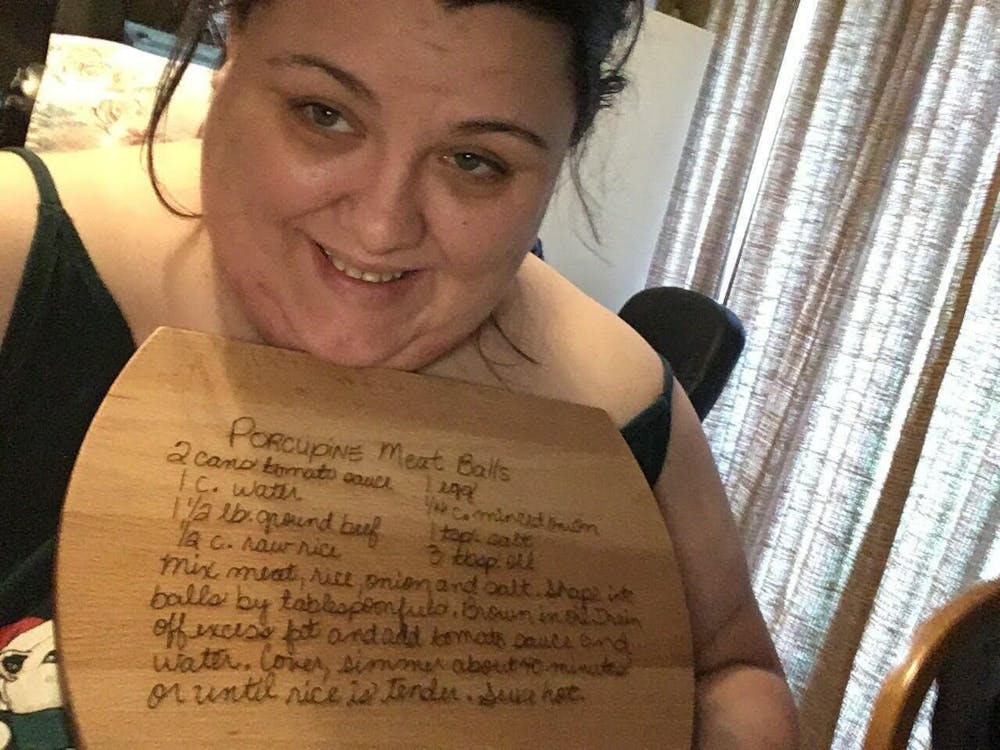 PORCUPINE Meat Balls
2 cans tomato sauce 1 egg
1 c. water 1/4 c. minced onion
1 1/2 lb. ground beef 1 tsp. salt
1/2 c. raw rice 3 tbsp. oil
Mix meat, rice, onion and salt. Shape into
balls by tablespoonfuls. Brown in oil. Drain
off excess fat and add tomato sauce and
water. Cover, simmer about 40 minutes
or until rice is tender. Serve hot.